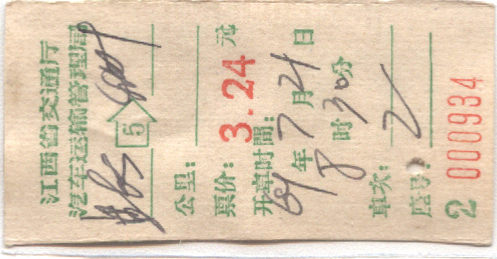 江西省交通厅
汽车运输管理局
5
公里：
票价： 3.24 元
开车时间：
年 7 月 21 日
8 时 30 分
车次： 2
座号：
2 000934